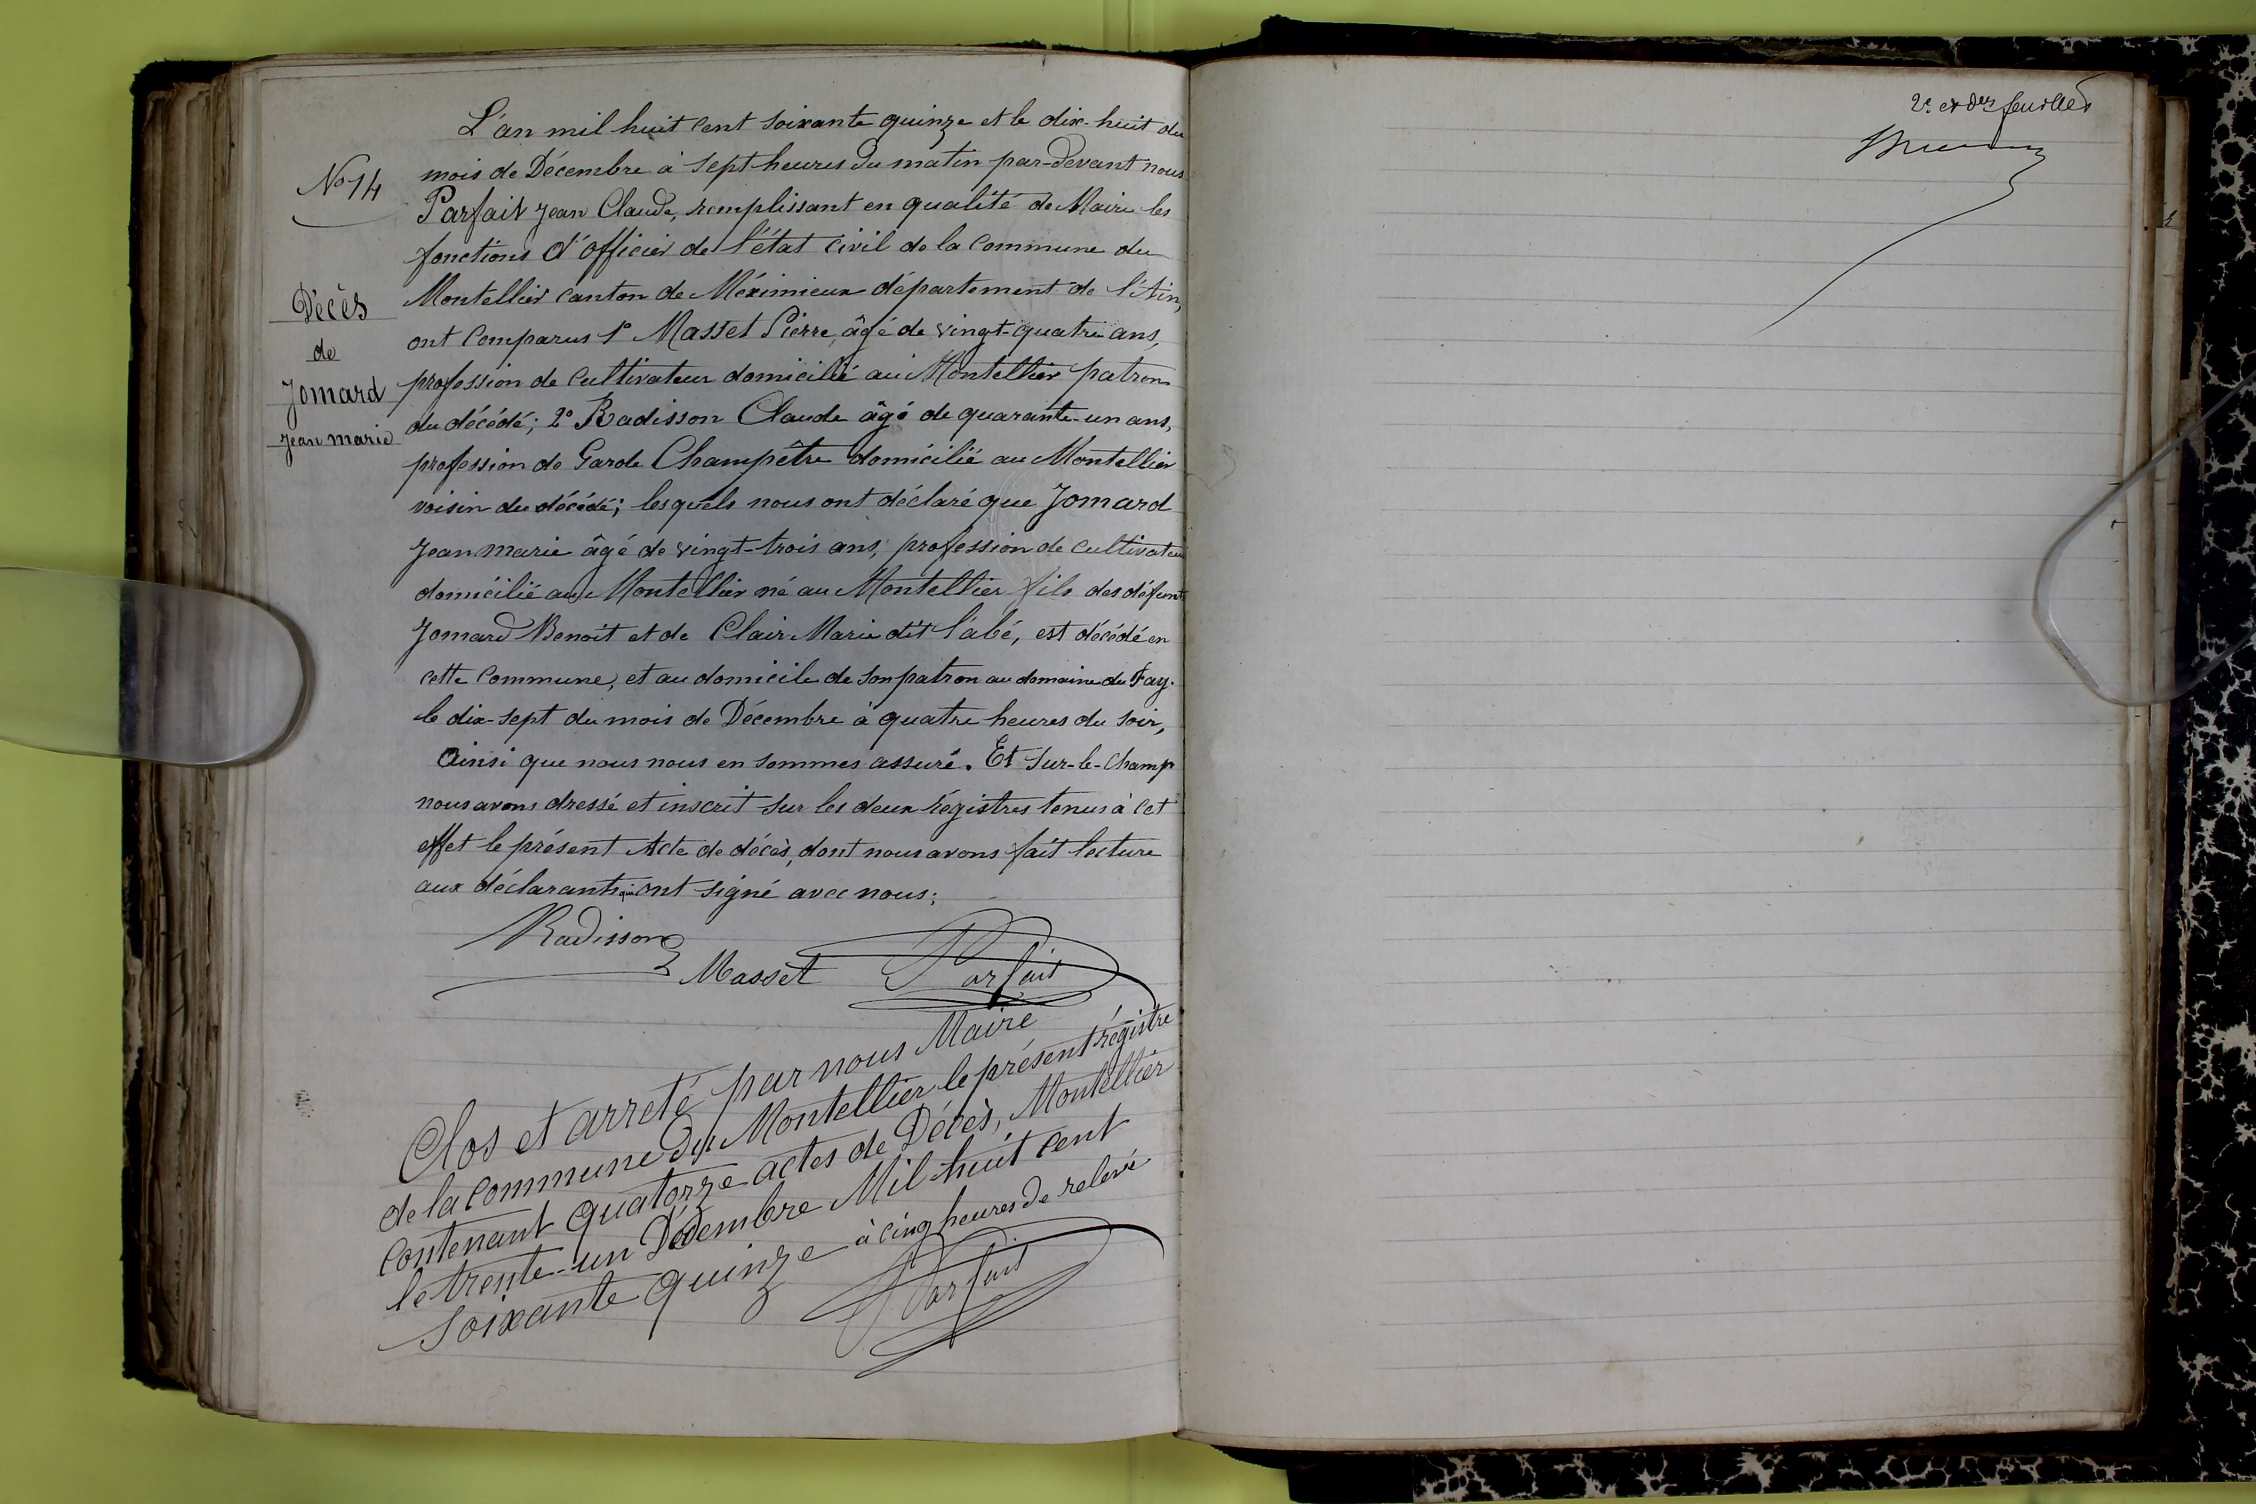 N° 14
Décès
de
Jomard
Jean marie
L'an mil huit cent soixante quinze et le dix-huit du
mois de Décembre à sept heures du matin par-devant nous
Parfait Jean Claude, remplissant en qualité de Maire les
fonctions d'officier de l'état civil de la commune du
Montellier canton de Méximieux département de l'Ain,
ont Comparus 1° Masset Pierre, âgé de vingt-quatre ans,
profession de Cultivateur domicilié au Montellier patron
du décédé; 2° Radisson Claude âgé de quarante-un ans,
profession de Garde Champêtre domicilié au Montellier
voisin du décédé; lesquels nous ont déclaré que Jomard
Jean marie âgé de vingt-trois ans, profession de cultivateur
domicilié au Montellier né au Montellier fils des défunt
Jomard Benoit et de Clair Marie dit l'abé, est décédé en
cette Commune, et au domicile de son patron au domaine du Fay.
le dix-sept du mois de Décembre à quatre heures du soir,
Ainsi que nous nous en sommes assuré. Et sur-le-champ
nous avons dressé et inscrit sur les deux régistres tenus à cet
effet le présent Acte de décès, dont nous avons fait lecture
aux déclarants qui ont signé avec nous;
Radisson
Masset Parfait
Maire
Clos et arrêté par nous
de la commune du Montellier le présent régistre
Contenant quatorze actes de Décès, Montellier
le trente-un Décembre Mil huit cent
soixante quinze à cinq heures de relevée
Parfait
2e et der feuillet